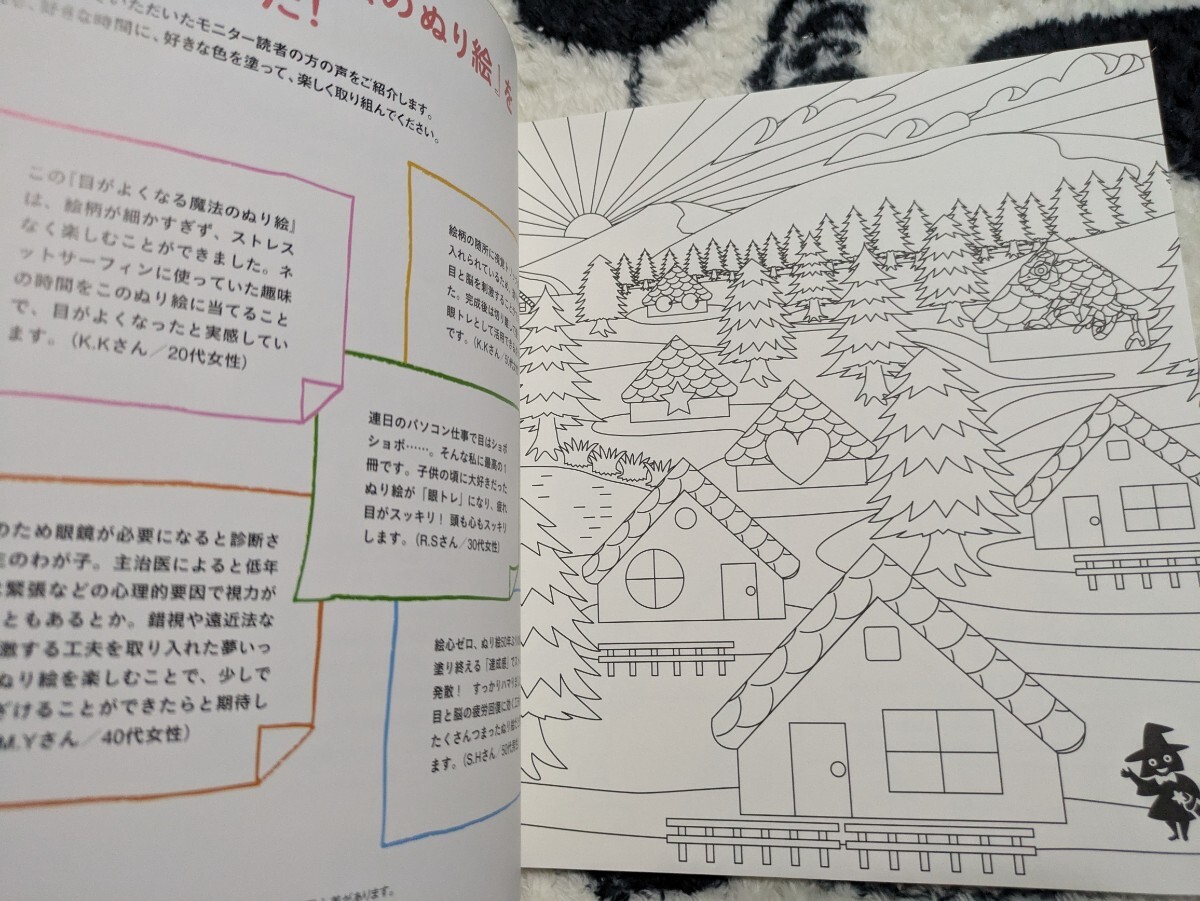 のぬり絵』を
た！
いただいたモニター読者の方の声をご紹介します。
好きな時間に、好きな色を塗って、楽しく取り組んでください。
この『目がよくなる魔法のぬり絵』
は、絵柄が細かすぎず、ストレス
なく楽しむことができました。ネ
ットサーフィンに使っていた趣味
の時間をこのぬり絵に当てること
で、目がよくなったと実感してい
ます。（K.Kさん／20代女性）
絵柄の随所に
入れられているため、
目と脳を刺激すること
た。完成後は切り
眼トレとして活用でき
です。（K.Kさん／
連日のパソコン仕事で目はショボ
ショボ……。そんな私に最高の1
冊です。子供の頃に大好きだった
ぬり絵が「眼トレ」になり、疲れ
目がスッキリ！ 頭も心もスッキリ
します。（R.Sさん／30代女性）
のため眼鏡が必要になると診断さ
生のわが子。主治医によると低年
緊張などの心理的要因で視力が
ともあるとか。錯視や遠近法な
激する工夫を取り入れた夢いっ
ぬり絵を楽しむことで、少しで
ざけることができたらと期待し
M.Yさん／40代女性）
絵心ゼロ、ぬり絵
塗り終える「達成感」で
発散！ すっかりハマり
目と脳の疲労回復に効く
たくさんつまったぬり絵
ます。（S.Hさん／50代
差があります。